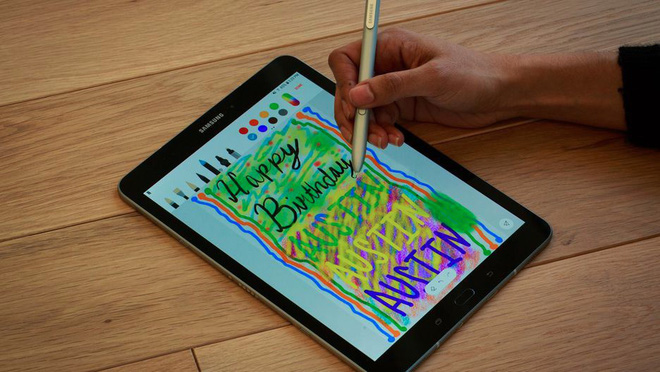 SAMSUNG
Happy
Birthday
AUSTIN
AUSTIN
AUSTIN